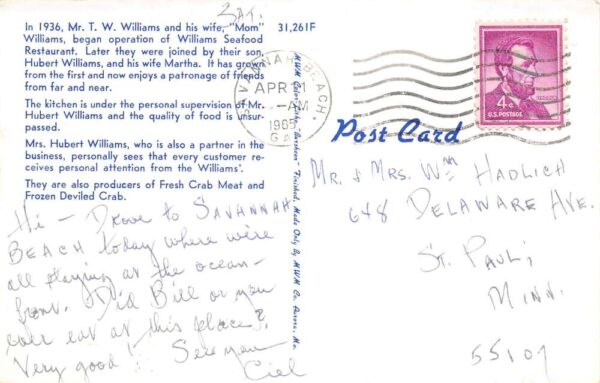 SAT.
In 1936, Mr. T. W. Williams and his wife, "Mom"
Williams, began operation of Williams Seafood
Restaurant. Later they were joined by their son,
Hubert Williams, and his wife Martha. It has grown
from the first and now enjoys a patronage of friends
from far and near.
The kitchen is under the personal supervision of Mr.
Hubert Williams and the quality of food is unsur-
passed.
Mrs. Hubert Williams, who is also a partner in the
business, personally sees that every customer re-
ceives personal attention from the Williams'.
They are also producers of Fresh Crab Meat and
Frozen Deviled Crab.
Hi - Drove to SAVANNAH
BEACH today where we're
all staying at the ocean-
front. Did Bill or you
ever eat at this place?
Very good!! See you
Ciel
31,261F
SAVANNAH BEACH
APR
AM
1965
GA
Made Only By MWM Co. Aurora, Mo.
4¢
U.S. POSTAGE
Post Card
Mr. & Mrs. Wm HADLICH
648 DELAWARE AVE.
ST. PAUL,
MINN.
55107